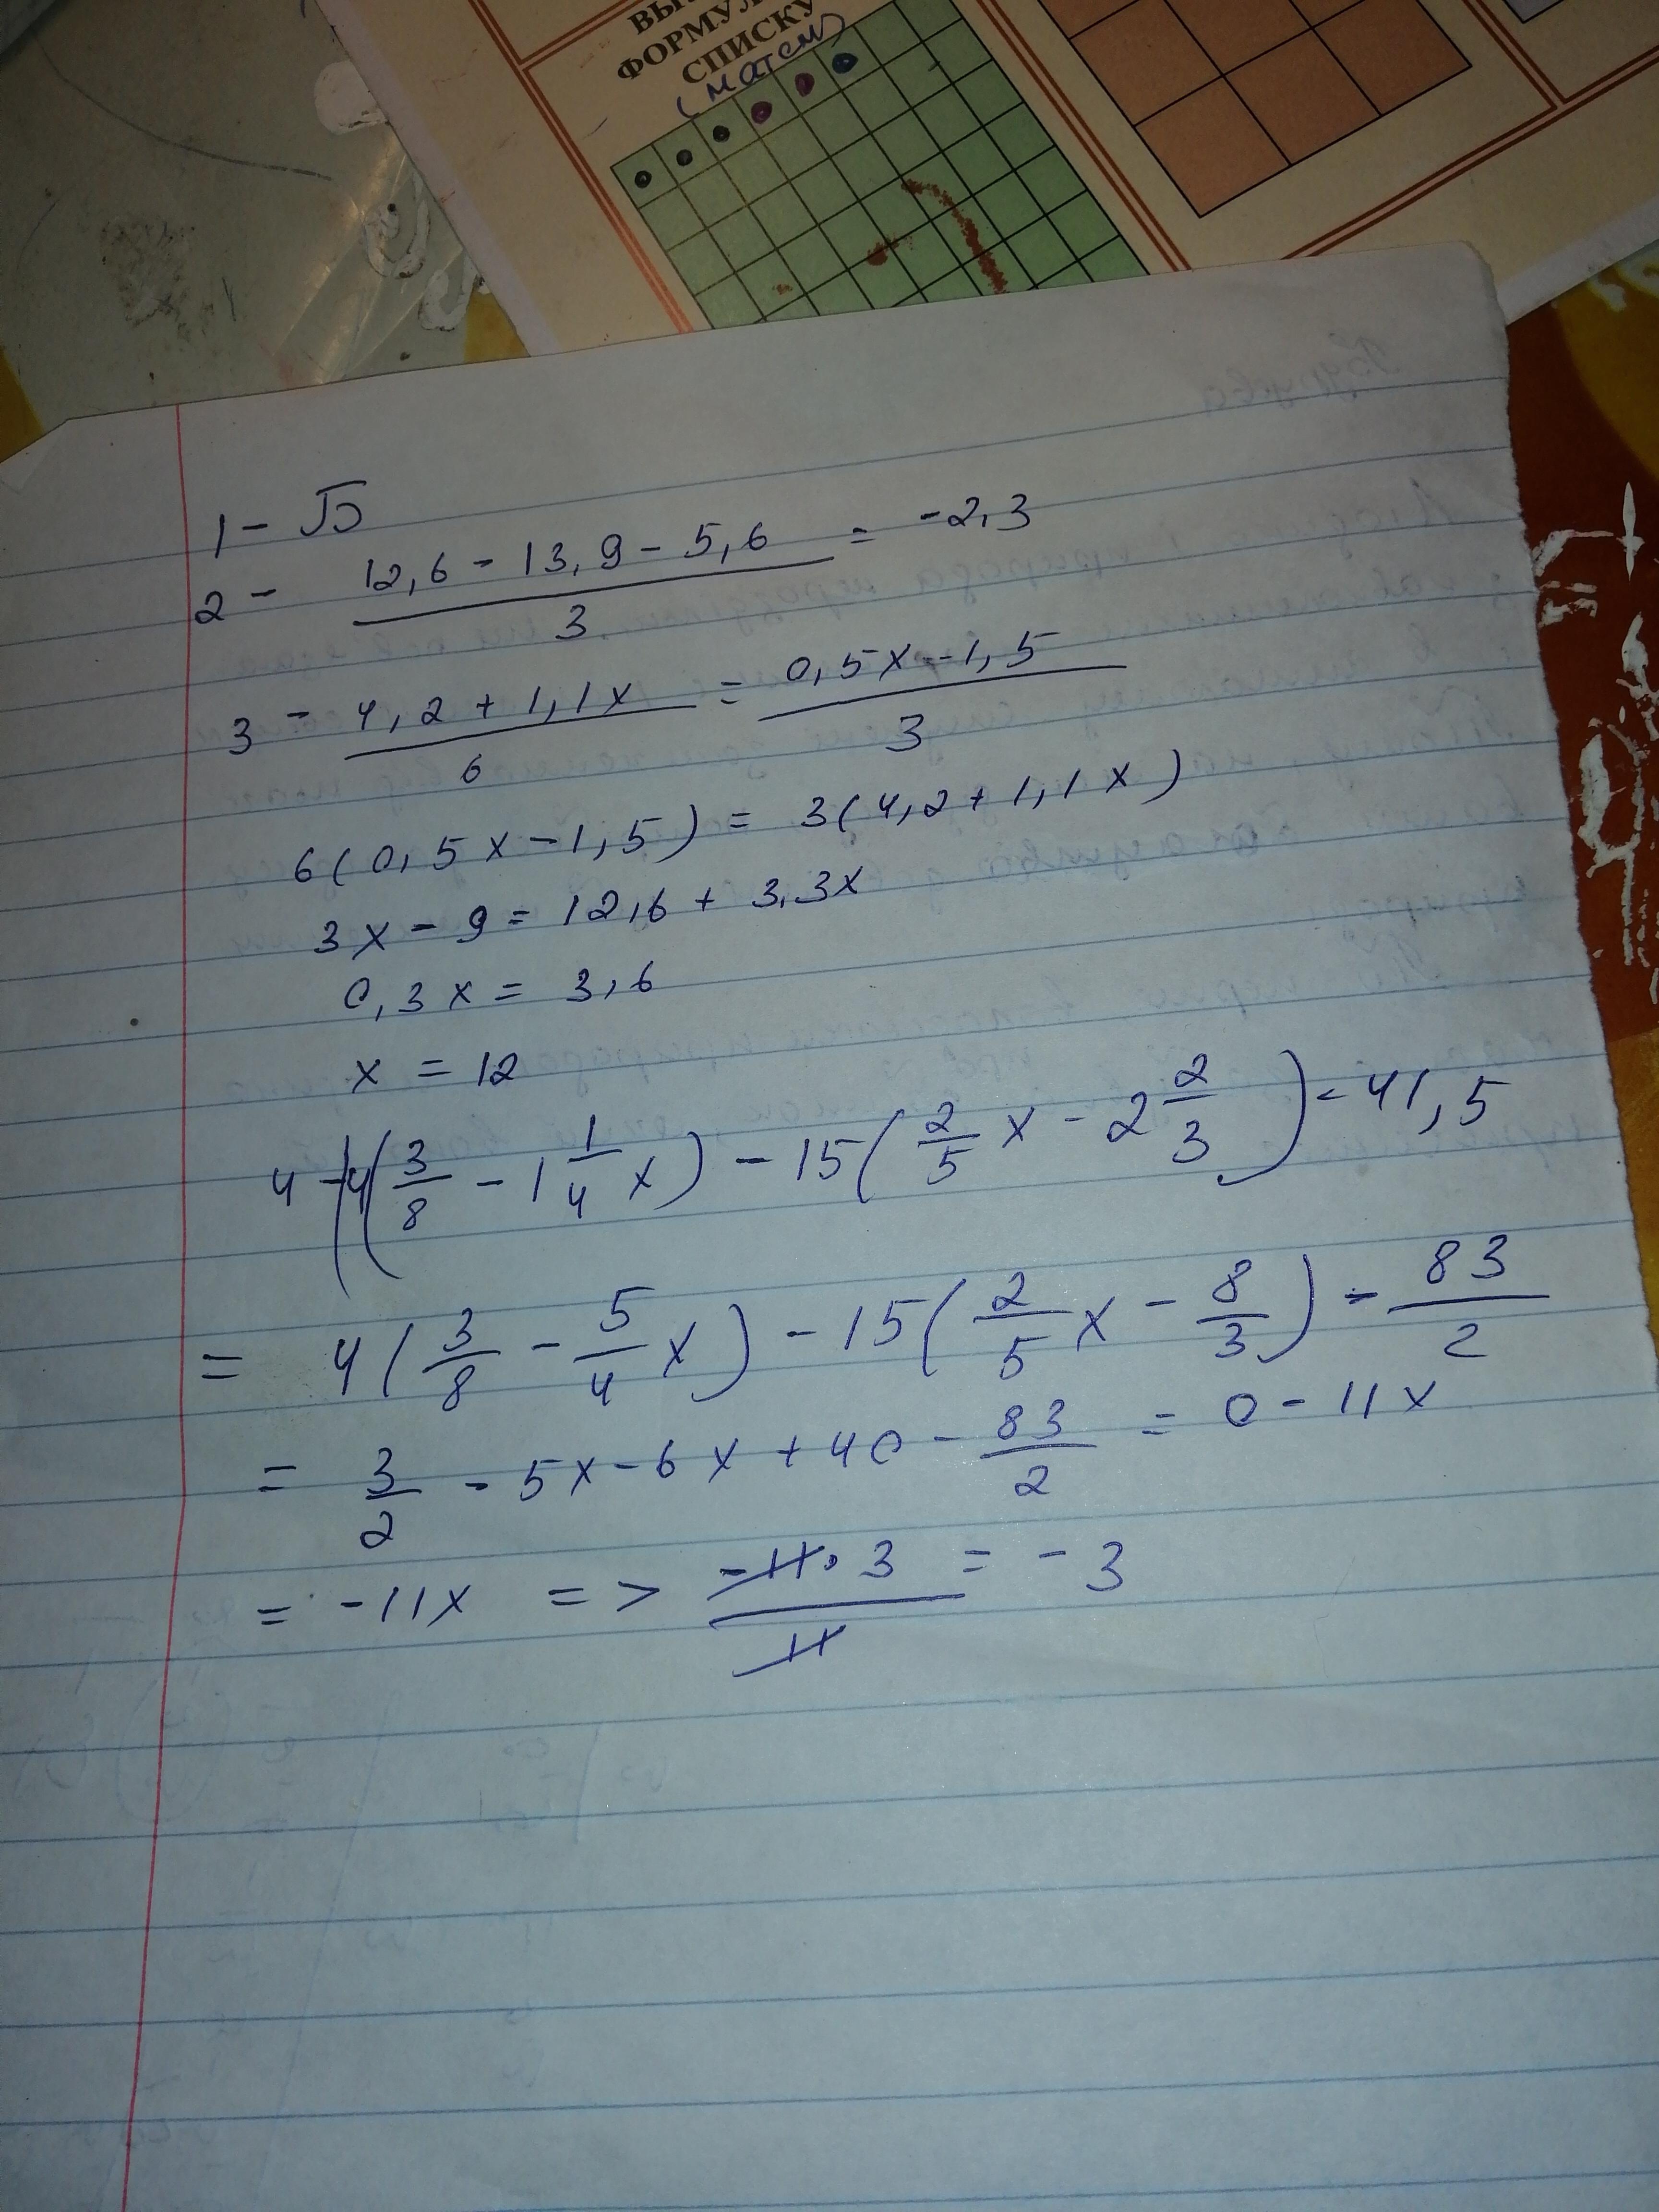 ФОРМУЛ
СПИСКУ
(матем)
1 -
2 - \frac{12,6 - 13,9 - 5,6}{3} = -2,3
3 - \frac{4,2 + 1,1x}{6} = \frac{0,5x - 1,5}{3}
6(0,5x - 1,5) = 3(4,2 + 1,1x)
3x - 9 = 12,6 + 3,3x
0,3x = 3,6
x = 12
4 - 4(\frac{3}{8} - 1\frac{1}{4}x) - 15(\frac{2}{5}x - 2\frac{2}{3}) - 41,5
= 4(\frac{3}{8} - \frac{5}{4}x) - 15(\frac{2}{5}x - \frac{8}{3}) - \frac{83}{2}
= \frac{3}{2} - 5x - 6x + 40 - \frac{83}{2} = 0 - 11x
= -11x => \frac{-11 \cdot 3}{11} = -3